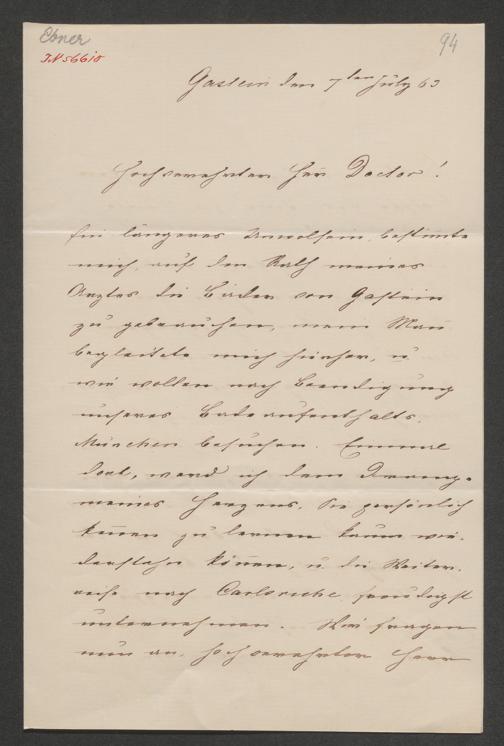 Ebner
94
JN 56610
Gastein den 7ten July 63
Hochverehrter Herr Doctor!
Ein längeres Unwolsein, bestimte
mich, auf den Rath meines
Arztes die Bäder von Gastein
zu gebrauchen, mein Man̄
begleitete mich hierher, u
wir wollen nach Beendigung
unseres Badeaufenthalts,
München besuchen. Einmal
dort, werd ich dem Drang-
meines Herzens, Sie persönlich
ken̄en zu lernen kaum wie-
derstehn kön̄en, u die Weiter-
reise nach Carlsruhe freudigst
unternehmen. Wir fragen
nun an, hochverehrter Herr